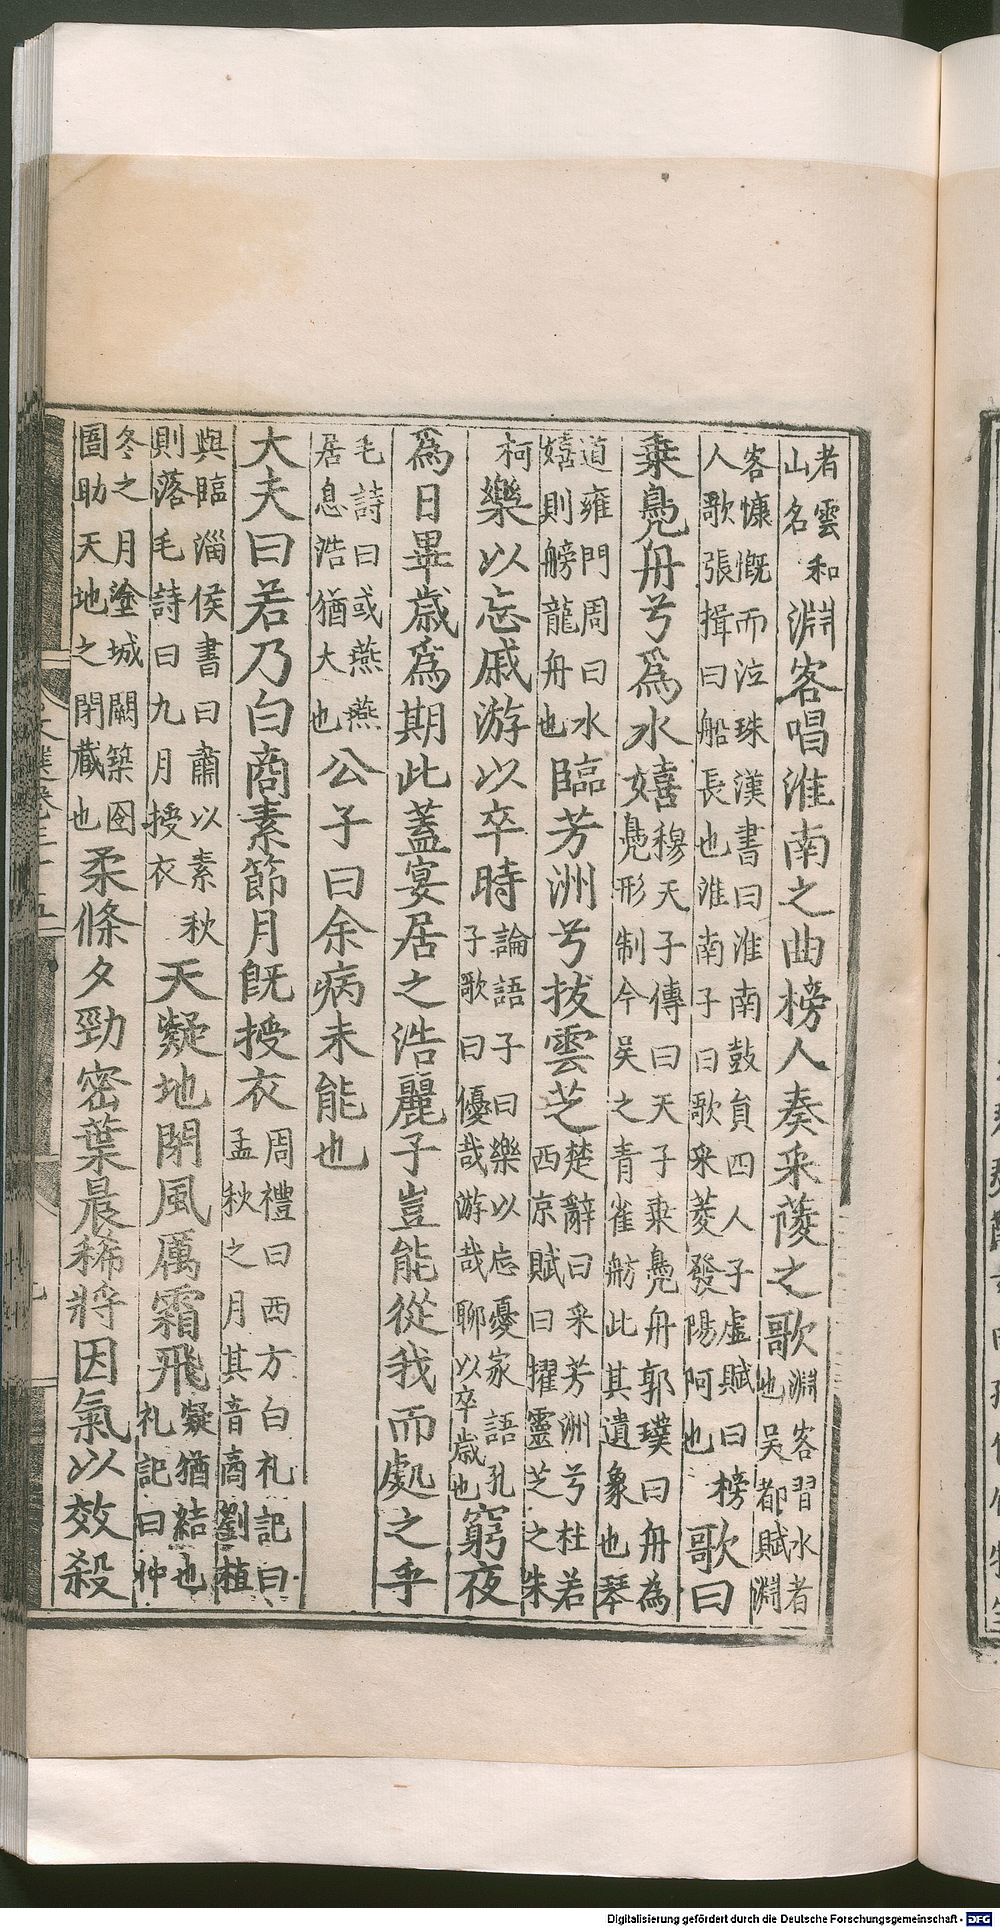 者雲和山名淵客唱淮南之曲榜人奏采蔆之歌淵客習水者也吳都賦淵
客慷慨而泣珠漢書曰淮南鼓員四人子虛賦曰榜人歌張揖曰船長也淮南子曰歌采菱發陽阿也歌曰
乗鳧舟兮爲水嬉穆天子傳曰天子乗鳧舟郭璞曰舟為鳧形制今吳之青雀舫此其遺象也琴
道雍門周曰水嬉則艕龍舟也臨芳洲兮拔雲芝楚辭曰采芳洲兮杜若西京賦曰擢靈芝之朱
柯樂以忘戚游以卒時論語子曰樂以忘憂家語孔子歌曰優哉游哉聊以卒歲也窮夜
爲日畢歲爲期此蓋宴居之浩麗子豈能從我而處之乎
毛詩曰或燕燕居息浩猶大也公子曰余病未能也
大夫曰若乃白商素節月旣授衣周禮曰西方白礼記曰孟秋之月其音商劉植
與臨淄侯書曰肅以素秋則落毛詩曰九月授衣天凝地閉風厲霜飛凝猶結也礼記曰仲
冬之月塗城闕築囹圄助天地之閉藏也柔條夕勁密葉晨稀將因氣以效殺
Digitalisierung gefördert durch die Deutsche Forschungsgemeinschaft - DFG